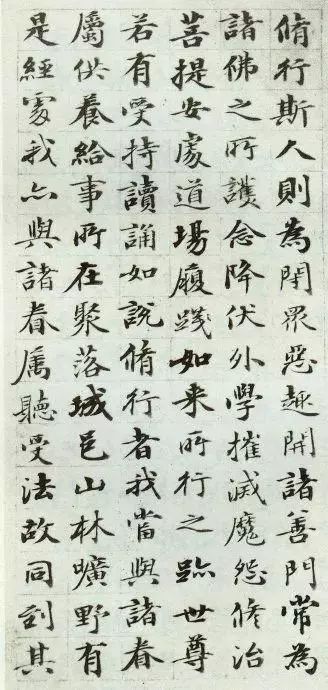 脩行斯人則為閇眾惡趣開諸善門常為
諸佛之所護念降伏外學摧滅魔怨修治
菩提安處道場履踐如来所行之跡世尊
若有受持讀誦如說脩行者我當與諸眷
屬供養給事所在聚落城邑山林曠野有
是經處我亦與諸眷屬聽受法故同到其